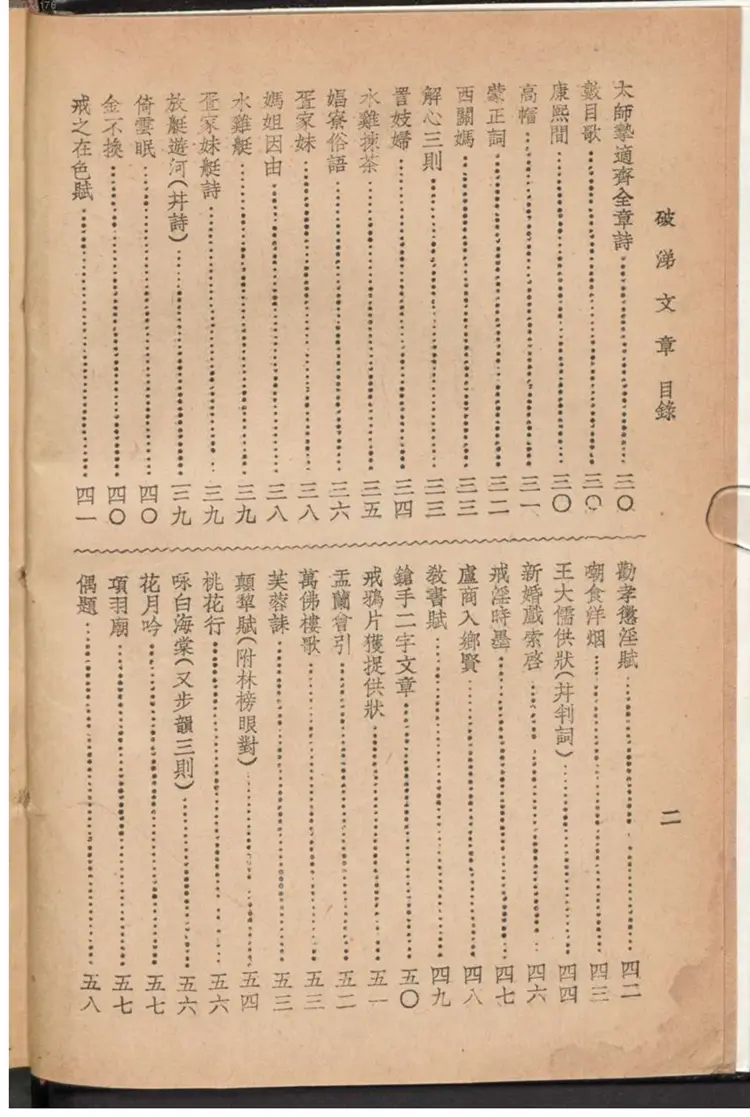 破涕文章 目錄
二
太師摯適齊全章詩 三〇
數目歌 三〇
康熙間 三〇
高帽 三一
蒙正詞 三二
西關媽 三三
解心三則 三三
詈妓婦 三四
水雞揀茶 三五
娼寮俗語 三六
疍家妹 三八
媽姐因由 三八
水雞艇 三九
疍家妹艇詩 三九
放艇遊河(幷詩) 三九
倚雲眠 四〇
金不換 四〇
戒之在色賦 四一
勸孝懲淫賦 四二
嘲食洋烟 四三
王大儒供狀(幷判詞) 四四
新婚戲索啓 四六
戒淫時墨 四七
盧商入鄉賢 四八
教書賦 四九
鎗手二字文章 五〇
戒鴉片獲捉供狀 五一
盂蘭會引 五二
萬佛樓歌 五三
芙蓉誄 五三
顛犂賦(附林榜眼對) 五四
桃花行 五六
咏白海棠(又步韻三則) 五六
花月吟 五七
項羽廟 五七
偶題 五八